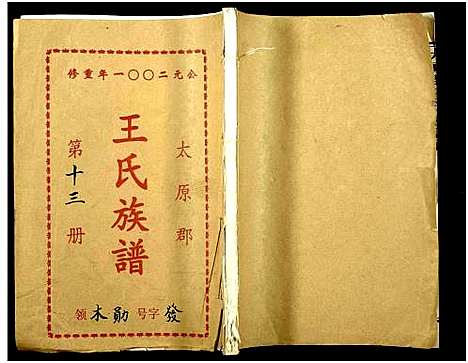 公元二〇〇一年重修
太原郡
王氏族譜
第十三册
發字号木勛领